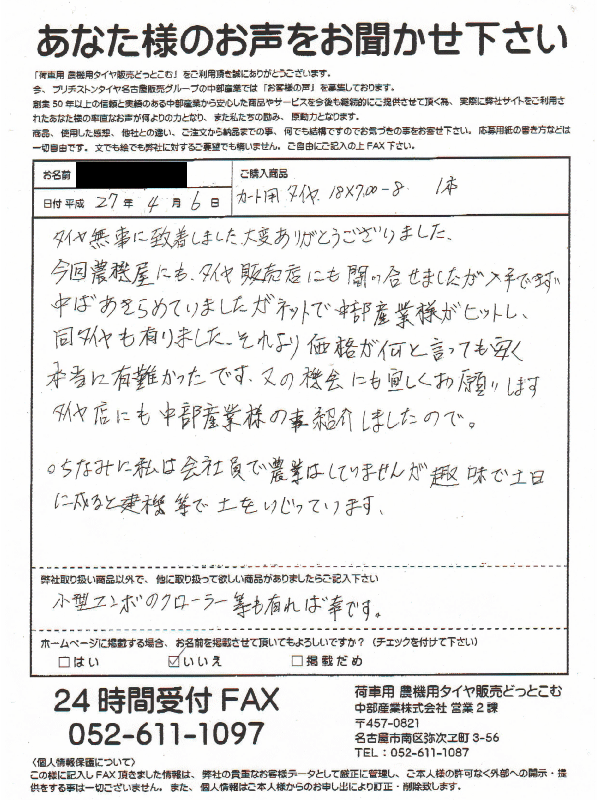 あなた様のお声をお聞かせ下さい
「荷車用 農機用タイヤ販売どっとこむ」をご利用頂き誠にありがとうございます。
今、ブリヂストンタイヤ名古屋販売グループの中部産業では「お客様の声」を募集しております。
創業50年以上の信頼と実績のある中部産業から安心した商品やサービスを今後も継続的にご提供させて頂く為、実際に弊社サイトをご利用さ
れたあなた様の率直なお声が何よりの力となり、また私たちの励み、原動力となります。
商品、使用した感想、他社との違い、ご注文から納品までの事、何でも結構ですのでお気づきの事をお寄せ下さい。応募用紙の書き方などは
一切自由です。文でも絵でも弊社に対するご要望でも構いません。ご自由にご記入の上FAX下さい。
お名前
ご購入商品
カート用タイヤ. 18X7.00-8 1本
日付 平成 27 年 4 月 6 日
タイヤ無事に到着しました、大変ありがとうございました、
今回農機屋にも、タイヤ販売店にも問い合せましたが入手できず
中ばあきらめていましたがネットで中部産業様がヒットし、
同タイヤも有りました、それより価格が何と言っても安く
本当に有難かったです、又の機会にも宜しくお願いします
タイヤ店にも中部産業様の事紹介しましたので。
○ちなみに私は会社員で農業はしていませんが趣味で土日
に成ると建機等で土をいじっています、
弊社取り扱い商品以外で、他に取り扱って欲しい商品がありましたらご記入下さい
小型ユンボのクローラー等も有れば幸です。
ホームページに掲載する場合、お名前を掲載させて頂いてもよろしいですか？（チェックを付けて下さい）
□はい ☑いいえ □掲載だめ
24時間受付FAX
052-611-1097
荷車用 農機用タイヤ販売どっとこむ
中部産業株式会社 営業2課
〒457-0821
名古屋市南区弥次ヱ町3-56
TEL：052-611-1087
〈個人情報保護について〉
この様に記入しFAX頂きました情報は、弊社の貴重なお客様データとして厳正に管理し、ご本人様の許可なく外部への開示・提
供をする事は一切ございません。また、個人情報はご本人様からのお申し出により訂正・削除致します。